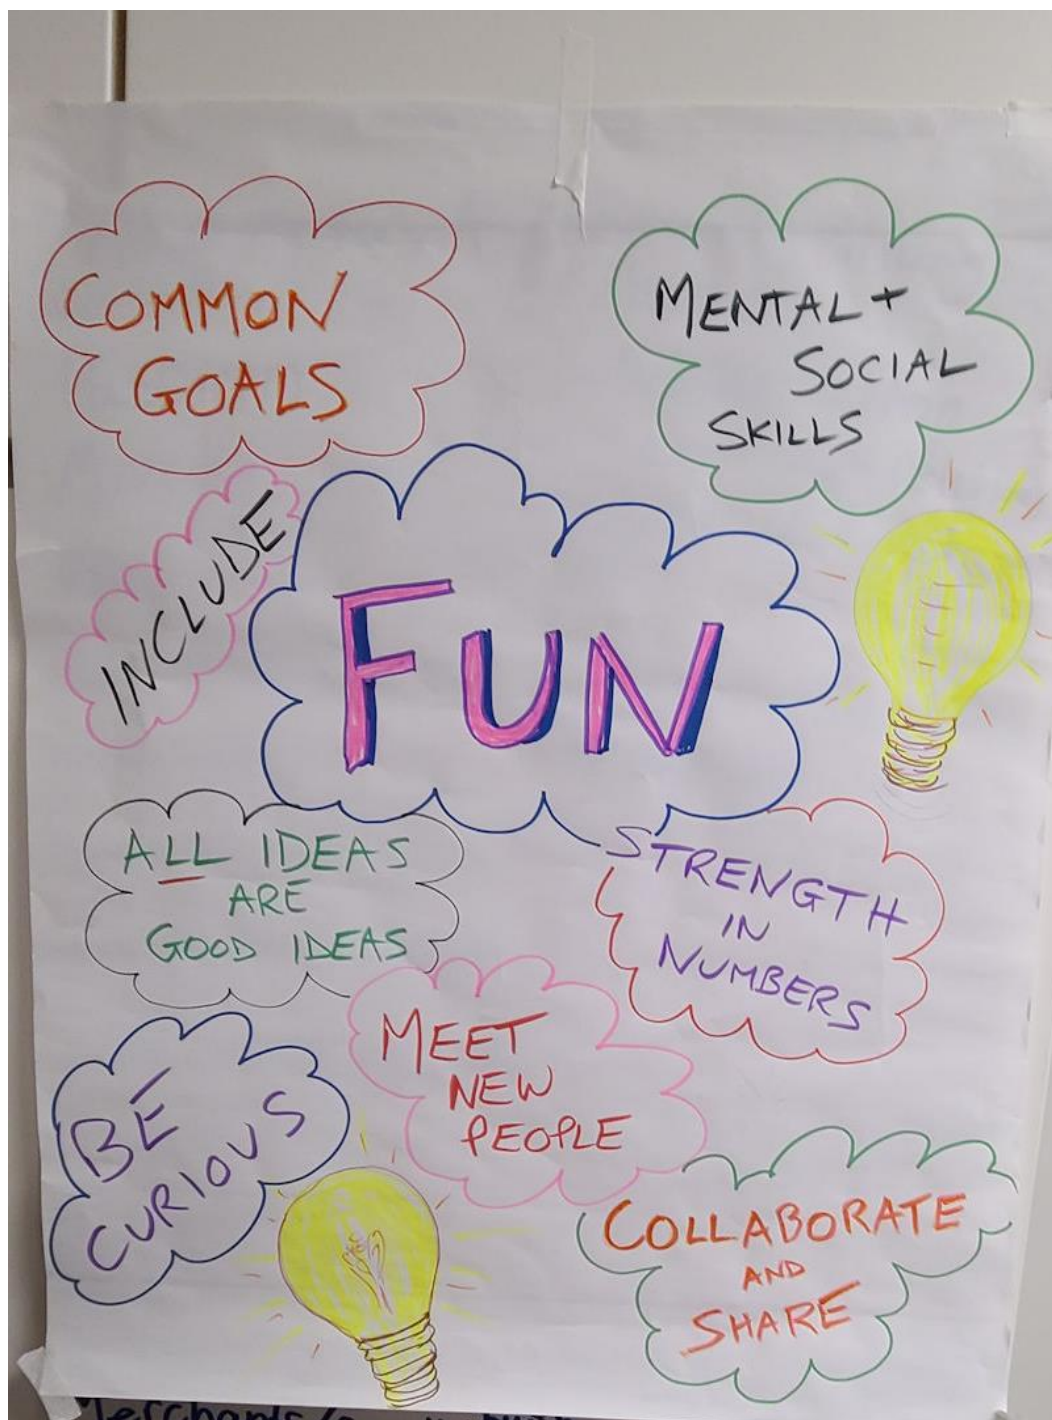 COMMON
GOALS
MENTAL +
SOCIAL
SKILLS
INCLUDE
FUN
ALL IDEAS
ARE
GOOD IDEAS
STRENGTH
IN
NUMBERS
MEET
NEW
PEOPLE
BE
CURIOUS
COLLABORATE
AND
SHARE